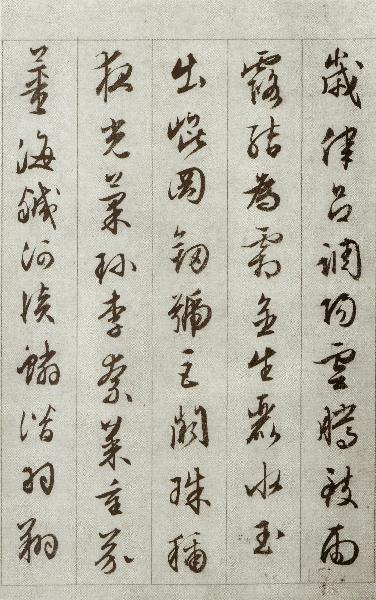 歲律呂調陽雲騰致雨
露結為霜金生麗水玉
出崐岡劒號巨闕珠稱
夜光菓珎李柰菜重芥
薑海鹹河淡鱗潛羽翔